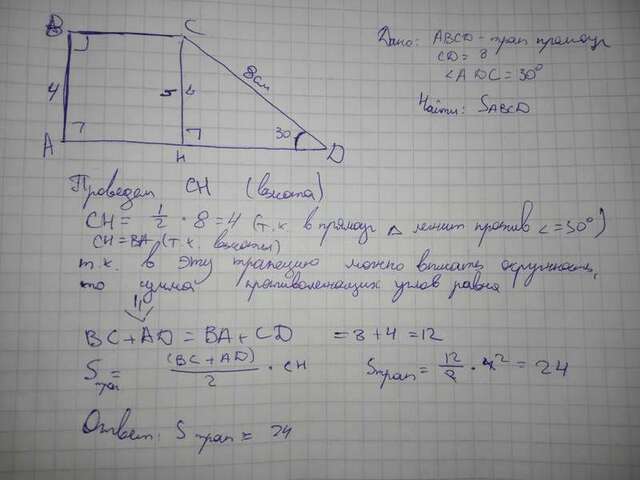 B C
4 8см
A H 30 D
Дано: ABCD - трап прямоуг
CD = 8
∠ADC = 30°
Найти: SABCD
Проведем CH (высота)
CH = 1/2 · 8 = 4 (т.к. в прямоуг △ лежит против ∠ = 30°)
CH = BA (т.к. высоты)
т.к. в эту трапецию можно вписать окружность,
то сумма противолежащих углов равна
BC + AD = BA + CD = 8 + 4 = 12
S трап = (BC + AD)/2 · CH S трап = 12/2 · 4 2 = 24
Ответ: S трап = 24